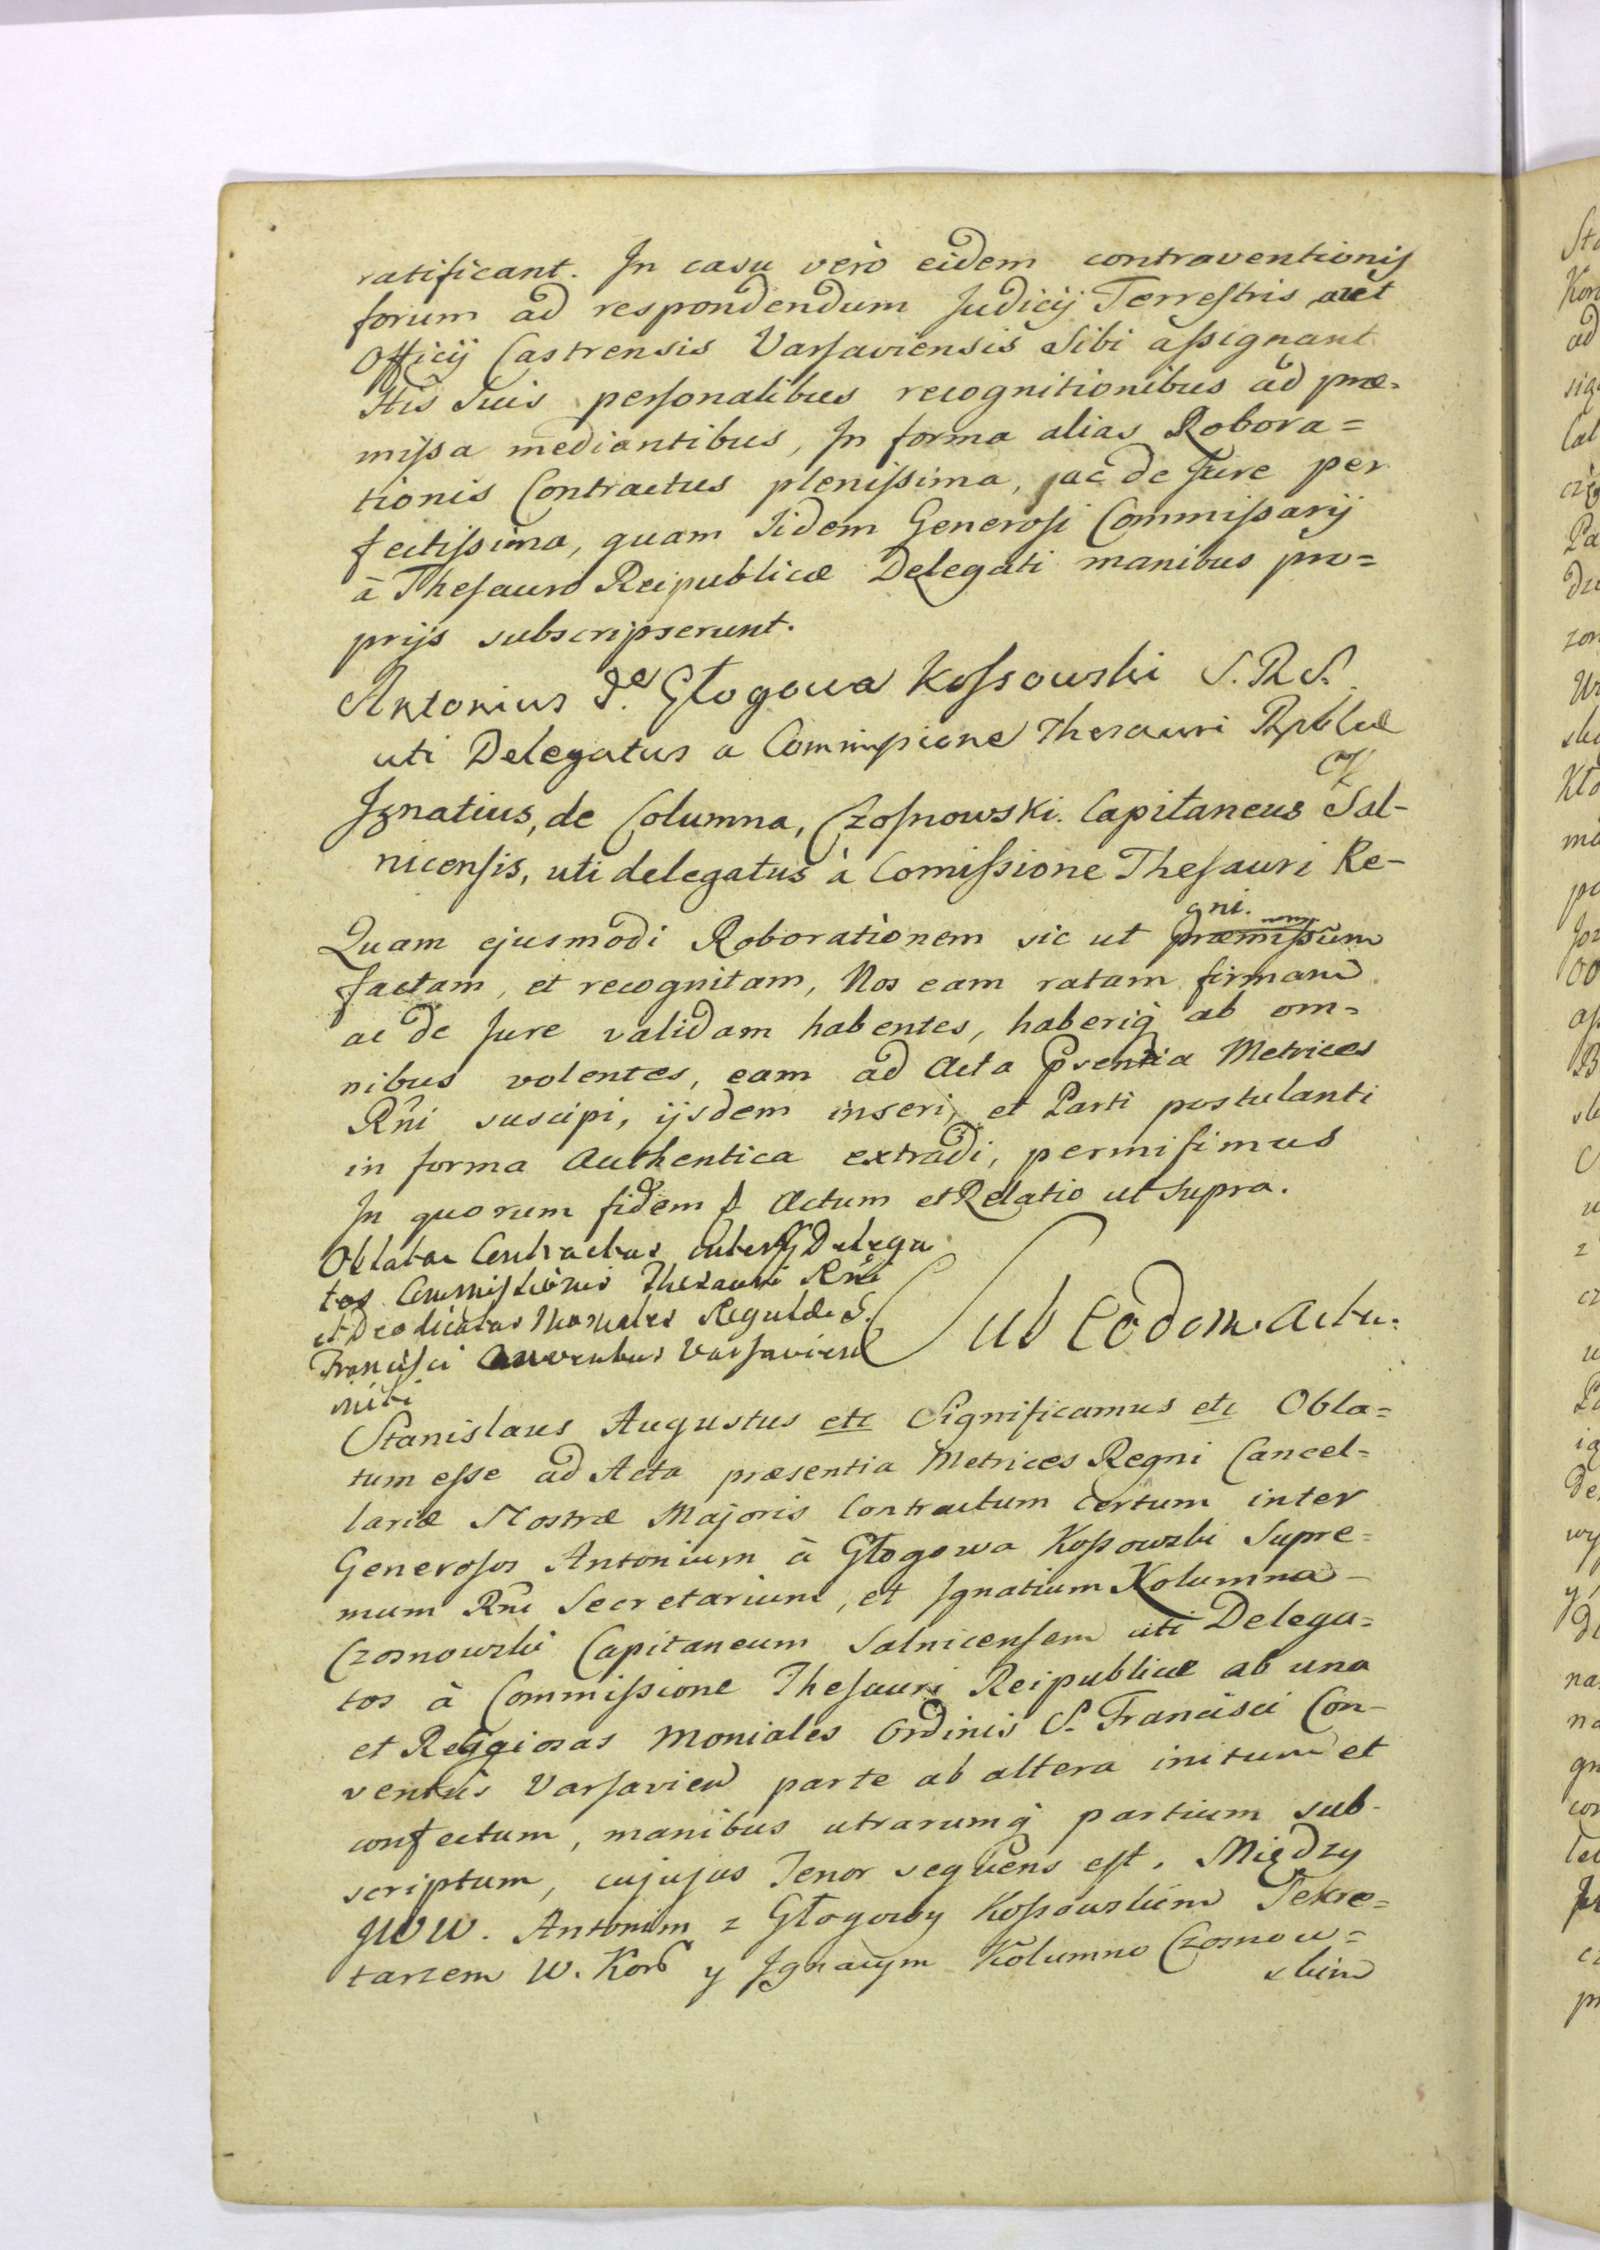 ratificant. In casu verò eidem contraventionis
forum ad respondendum Judicij Terrestris aut
Officij Castrensis Varsaviensis Sibi assignant
His Suis personalibus recognitionibus ad præ=
missa mediantibus, In forma alias Robora=
tionis Contractus plenissima, ac de Jure per
fectissima, quam Iidem Generosi Commissarij
à Thesauro Reipublicæ Delegati manibus pro=
prijs subscripserunt.
Antonius de Głogowa Kossowski S. R. S.
uti Delegatus a Commissione Thesauri Rpblcæ
Ignatius, de Columna, Czosnowski. Capitaneus Sal-
nicensis, uti delegatus à Comissione Thesauri Re-
gni.
Quam ejusmodi Roborationem sic ut præmissum
factam, et recognitam, Nos eam ratam firmam
ac de Jure validam habentes, haberiq ab om=
nibus volentes, eam ad Acta pñsentia Metrices
Rñi suscipi, ijsdem inseri, et Parti postulanti
in forma Authentica extradi, permisimus
In quorum fidem Actum et Relatio ut supra.
Oblatae Contractus inter Delega
tos Commissionis Thesauri Rñi
et Deo dicatas Moniales Regulæ S.
Francisci Conventus Varsavien
initi
Sub Eodem Actu.
Stanislaus Augustus etc Significamus etc Obla=
tum esse ad Acta præsentia Metrices Regni Cancel=
lariæ Nostræ Majoris Contractum certum inter
Generosos Antonium à Głogowa Kossowski Supre=
mum Rñi Secretarium, et Ignatium Kolumna
Czosnowski Capitaneum Salnicensem uti Delega=
tos à Commissione Thesauri Reipublicæ ab una
et Religiosas Moniales Ordinis S. Francisci Con-
ventûs Varsavien parte ab altera initum et
confectum, manibus utrarumq partium sub-
scriptum, cujujus Tenor sequens est. Między
JWW. Antonim z Głogowy Kossowskim Sekre=
tarzem W. Kor y Ignacym Kolumno Czosnow=
skim